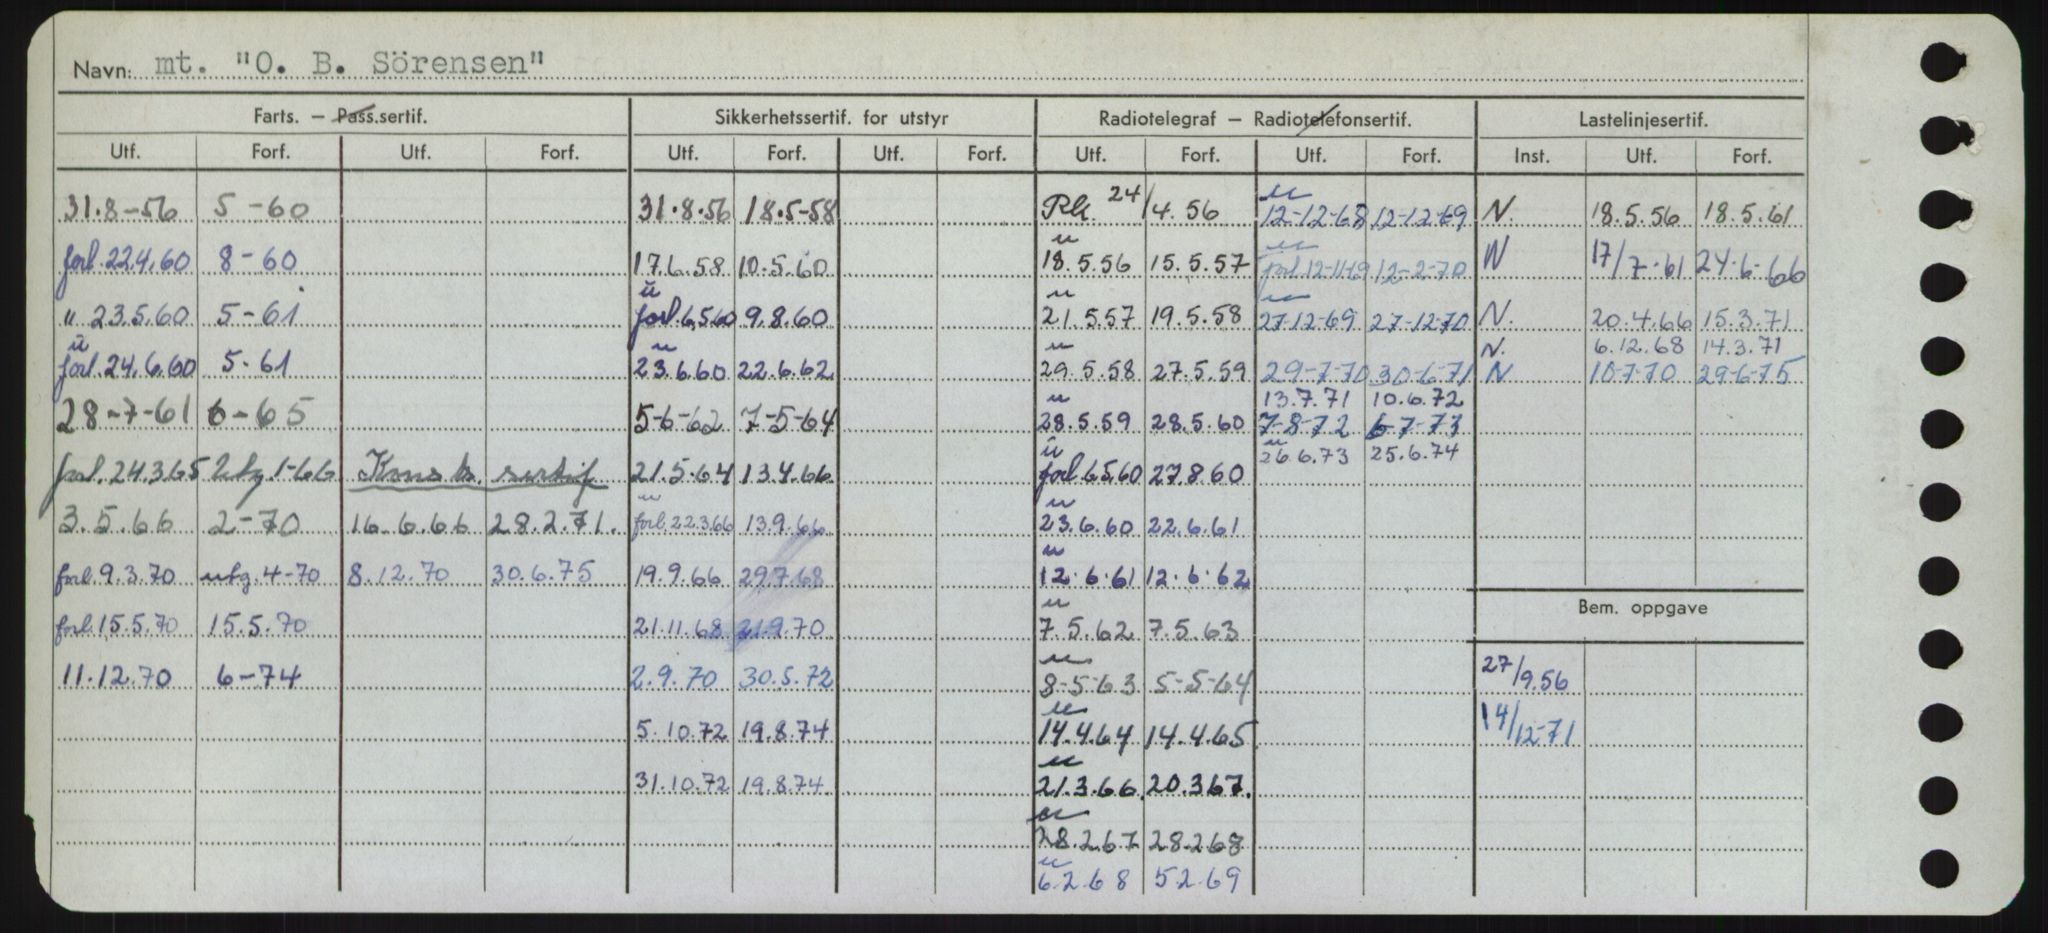 Navn: mt. "O. B. Sörensen"
Farts. — Pass.sertif. Sikkerhetssertif. for utstyr Radiotelegraf — Radiotelefonsertif. Lastelinjesertif.
Utf. Forf. Utf. Forf. Utf. Forf. Utf. Forf. Utf. Forf. Utf. Forf. Inst. Utf. Forf.
31.8-56 5-60 31.8.56 18.5-58 Rk. 24/4.56 12-12-68 12-12-69 N. 18.5.56 18.5.61
forl. 22.4.60 8-60 17.6.58 10.5.60 18.5.56 15.5.57 forl 12-11-69 12-2-70 N 17/7.61 24.6-66
" 23.5.60 5-61 forl 6.5.60 9.8.60 21.5.57 19.5.58 27-12-69 27-12-70 N. 20.4.66 15.3.71
N. 6.12.68 14.3.71
forl. 24.6.60 5-61 23.6.60 22.6.62 29.5.58 27.5.59 29-7-70 30-6-71 N 10-7-70 29-6-75
13.7.71 10.6.72
28-7-61 6-65 5-6-62 7-5-64 28.5.59 28.5.60 7-8-72 6-7-73
26.6.73 25.6.74
forl. 24.3.65 utg 1-66 Konstr. sertif 21.5-64 13.4.66 forl 6.5.60 27.8.60
3.5.66 2-70 16.6.66 28.2.71. forl. 22.3.66 13.9.66 23.6.60 22.6.61
forl. 9.3.70 utg. 4-70 8.12.70 30.6.75 19.9.66 29.7.68 12.6.61 12.6.62
Bem. oppgave
forl. 15.5.70 15.5.70 21.11.68 21.9.70 7.5.62 7.5.63
11.12.70 6-74 2.9.70 30.5.72 8-5-63 5-5-64 27/9.56
5.10.72 19.8.74 14.4.64 14.4.65 14/12-71
31.10.72 19.8.74 21.3.66. 20.3.67.
28.2.67 28.2.68
6.2.68 5.2.69